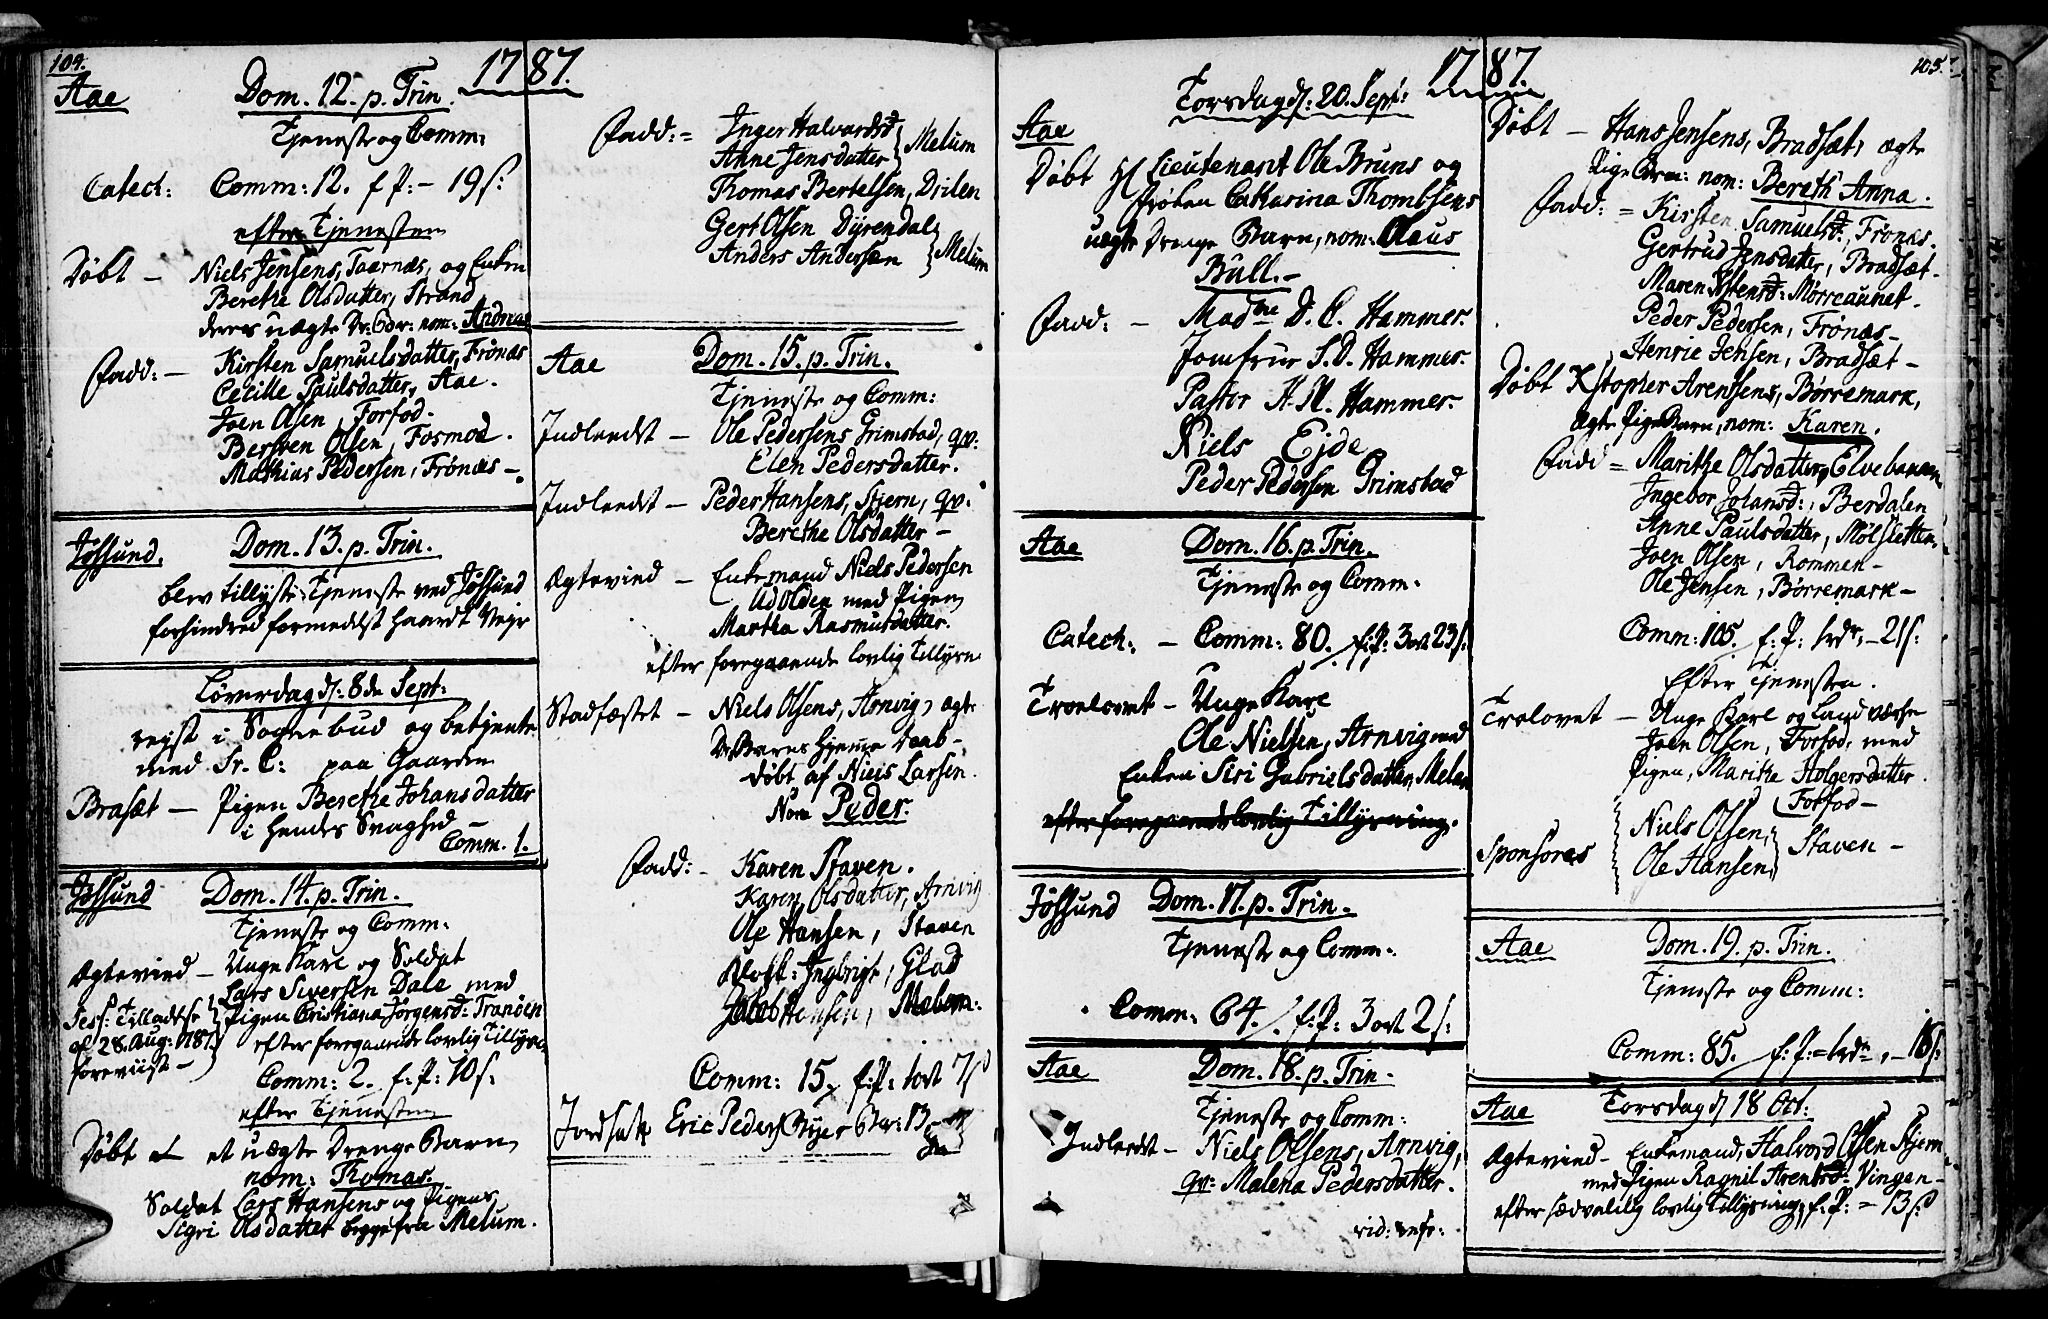 104.
1787.
Aae Dom. 12. p. Trin.
Tjeneste og Comm:
Catech: Comm: 12. f P: - 19 s:
efter Tjenesten
Døbt - Niels Jensens, Taarnæs, og Enken
Berethe Olsdatter, Strand
deres uægte Dr: Bar: nom: Andreas
Fadd: - Kirsten Samuelsdatter, Frønæs
Cecille Paulsdatter, Aae.
Joen Olsen, Forfod.
Bersven Olsen, Fosmod.
Mathias Pedersen, Frønæs -
Jøssund. Dom. 13. p. Trin.
blev tillyste Tjeneste ved Jøssund
forhindred formedelst haardt Vejr
Løverdag d: 8de Sept:
rejst i Sognebud og betjente
med Sr. C: paa Gaarden
Brasæt - Pigen Berethe Johansdatter
i hendes Svaghed -
Comm. 1.
Jøssund Dom. 14. p. Trin.
Tjeneste og Comm:
Ægteviед - Unge Karl og Soldat
Lars Siversen Dale med
Sess: Tilladelse Pigen Cristiana Jørgensd: Tranøen
af 28. Aug: 1787 efter foregaaende lovlig Tillysn:
foreviist -
Comm: 2. f: P: 10 s:
efter Tjenesten
Døbt et uægte Drenge Barn
nom: Thomas.
Soldat Lars Hansens og Pigens
Sigri Olsdatter begge fra Melum.
Fadd: = Inger Halvardsd:
Anne Jensdatter } Melum
Thomas Bertelsen, Drilen
Gert Olsen Dyrendal
Anders Andersen } Melum
Aae Dom. 15. p. Trin.
Tjeneste og Comm:
Indleedt - Ole Pedersens Grimstad, qv:
Elen Pedersdatter.
Indleedt - Peder Hansens, Stjern, qv:
Berethe Olsdatter -
Ægtevied - Enkemand Niels Pedersen
Udolden med Pigen
Martha Rasmusdatter.
efter foregaaende lovlig Tillysn:
Stadfæstet - Niels Olsens, Arnvig, ægte
Dr: Barns hjemme Daab -
døbt af Niels Larsen.
Nom Peder.
Fadd: - Karen Staven.
Karen Olsdatter, Arnvig
Ole Hansen, Staven
Ingbrigt, Glad
Jacob Hansen,
Comm: 15, f: P: 1 ort 7 s
Eric Peders
1787.
105.
Torsdag d: 20. Sept:
Aae
Døbt Hr Lieutenant Ole Bruns og
Frøken Catharina Thombsens
uægte Drenge Barn, nom: Claus
Bull. -
Fadd: - Madme D. C. Hammer.
Jomfrue S. D. Hammer.
Pastor H. H. Hammer.
Niels Ejde
Peder Pedersen Grimstad
Aae Dom. 16. p. Trin.
Tjeneste og Comm:
Catech: - Comm: 80. f: P: 3 ort 23 s:
Troelovet - Unge Karl
Ole Nielsen, Arnvig med
Enken Siri Gabrielsdatter, Melan
efter foregaaende lovlig Tillysning.
Jøssund Dom. 17. p. Trin.
Tjeneste og Comm:
Comm: 64. f: P: 3 ort 2 s:
Aae Dom. 18. p. Trin.
Tjeneste og Comm:
Indleedt - Niels Olsens, Arnvig,
qv: Malena Pedersdatter.
vid: infr:
Døbt - Hans Jensens, Bradsæt, ægte
Pige Barn: nom: Bereth Anna.
Fadd: = Kirsten Samuelsd:, Frønæs.
Gertrud Jensdatter, Bradsæt -
Maren Mørreaunet -
Peder Pedersen, Frønæs -
Henric Jensen, Bradsæt -
Døbt Xstopher Arentsens, Børremark,
ægte Pige Barn, nom: Karen.
Fadd = Marithe Olsdatter, Elvebaken
Ingebor Johansd:, Berdalen
Anne Paulsdatter, Mølsletten
Joen Olsen, Rommen -
Ole Jensen, Børremark -
Comm: 105. f: P: 1 rdr, - 21 s:
Efter Tjenesten.
Trolovet - Unge Karl og Landværse
Joen Olsen, Forfod, med
Pigen, Marithe Holgersdatter.
Forfod -
Sponsores Niels Olsen,
Ole Hansen, } Staven -
Aae Dom. 19. p. Trin.
Tjeneste og Comm:
Comm: 85. f: P: = 1 rdr, - 18 s:
Aae Torsdag d 18 Oct:
Ægtevied - Enkemand, Halvord Olsen Stjern,
med Pigen Ragnil Arentsd: Vingen -
efter sædvanlig lovlig Tillysning, f: P: = 13 s: